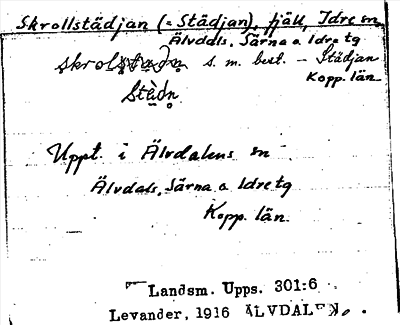 Skrollstädjan (= Städjan), fjäll, Idre sn
Älvdals, Särna o Idre tg
s. m. best. – Städjan
Kopp. län
Uppt. i Älvdalens sn
Älvdals, Särna o Idre tg
Kopp. län.
Landsm. Upps. 301:6
Levander, 1916 ÄLVDALEN.